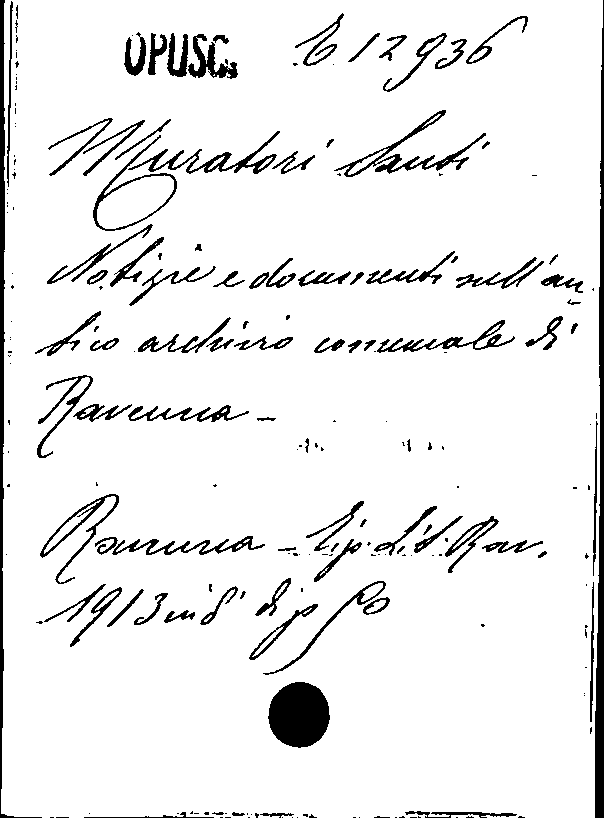 OPUSC. E 12936
Muratori Santi
Notizie e documenti sull'an-
tico archivio comunale di
Ravenna -
Ravenna - Tip. Lit. Rav.
1913 in 8° di p.